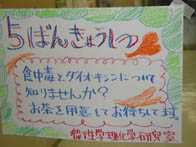 5ばんきょうしつ
食中毒とダイオキシンについて
知りませんか?
お茶を用意してお待ちしてます。
物性学理化学研究室